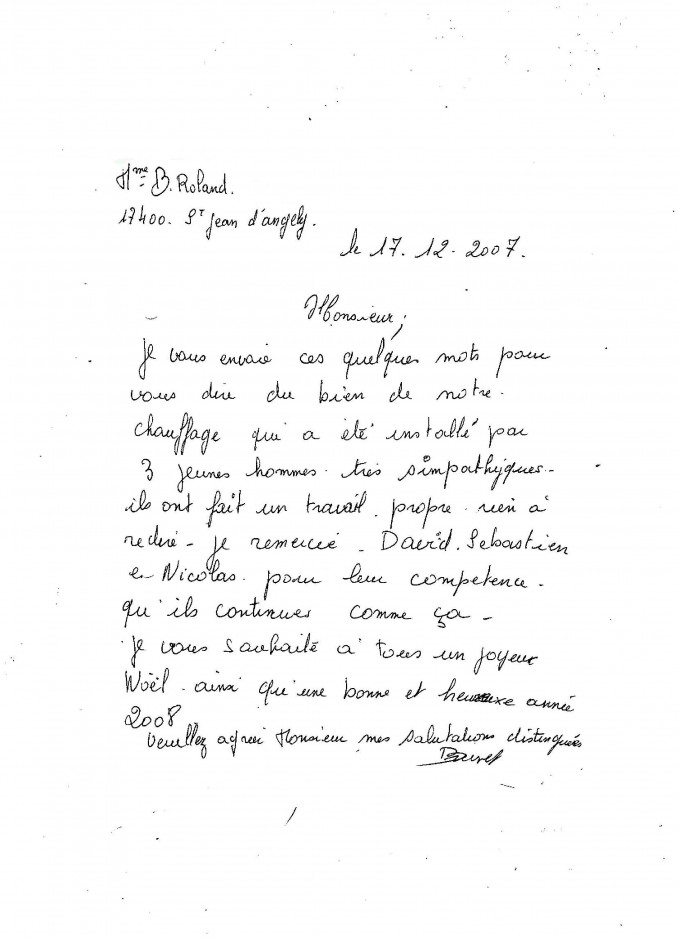 Mme B. Roland.
17400. St Jean d'angely.
le 17. 12. 2007.
Monsieur,
Je vous envoie ces quelques mots pour
vous dire du bien de notre.
chauffage qui a été installé par
3 jeunes hommes. très simpathyques.
ils ont fait un travail. propre. rien à
redire. je remercie. David. Sebastien
et Nicolas. pour leur competence.
qu'ils continues comme ça.
Je vous souhaite à tous un joyeux
Noël. ainsi qu'une bonne et heureuse année
2008
Veuillez agréer Monsieur mes salutations distinguées